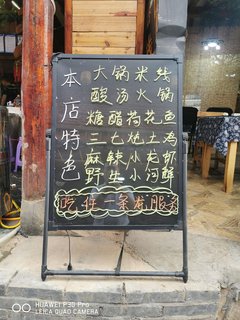 本店特色
大锅米线
酸汤火锅
糖醋荷花鱼
三七炖土鸡
麻辣小龙虾
野生小河鲜
吃住一条龙服务
HUAWEI P30 Pro
LEICA QUAD CAMERA